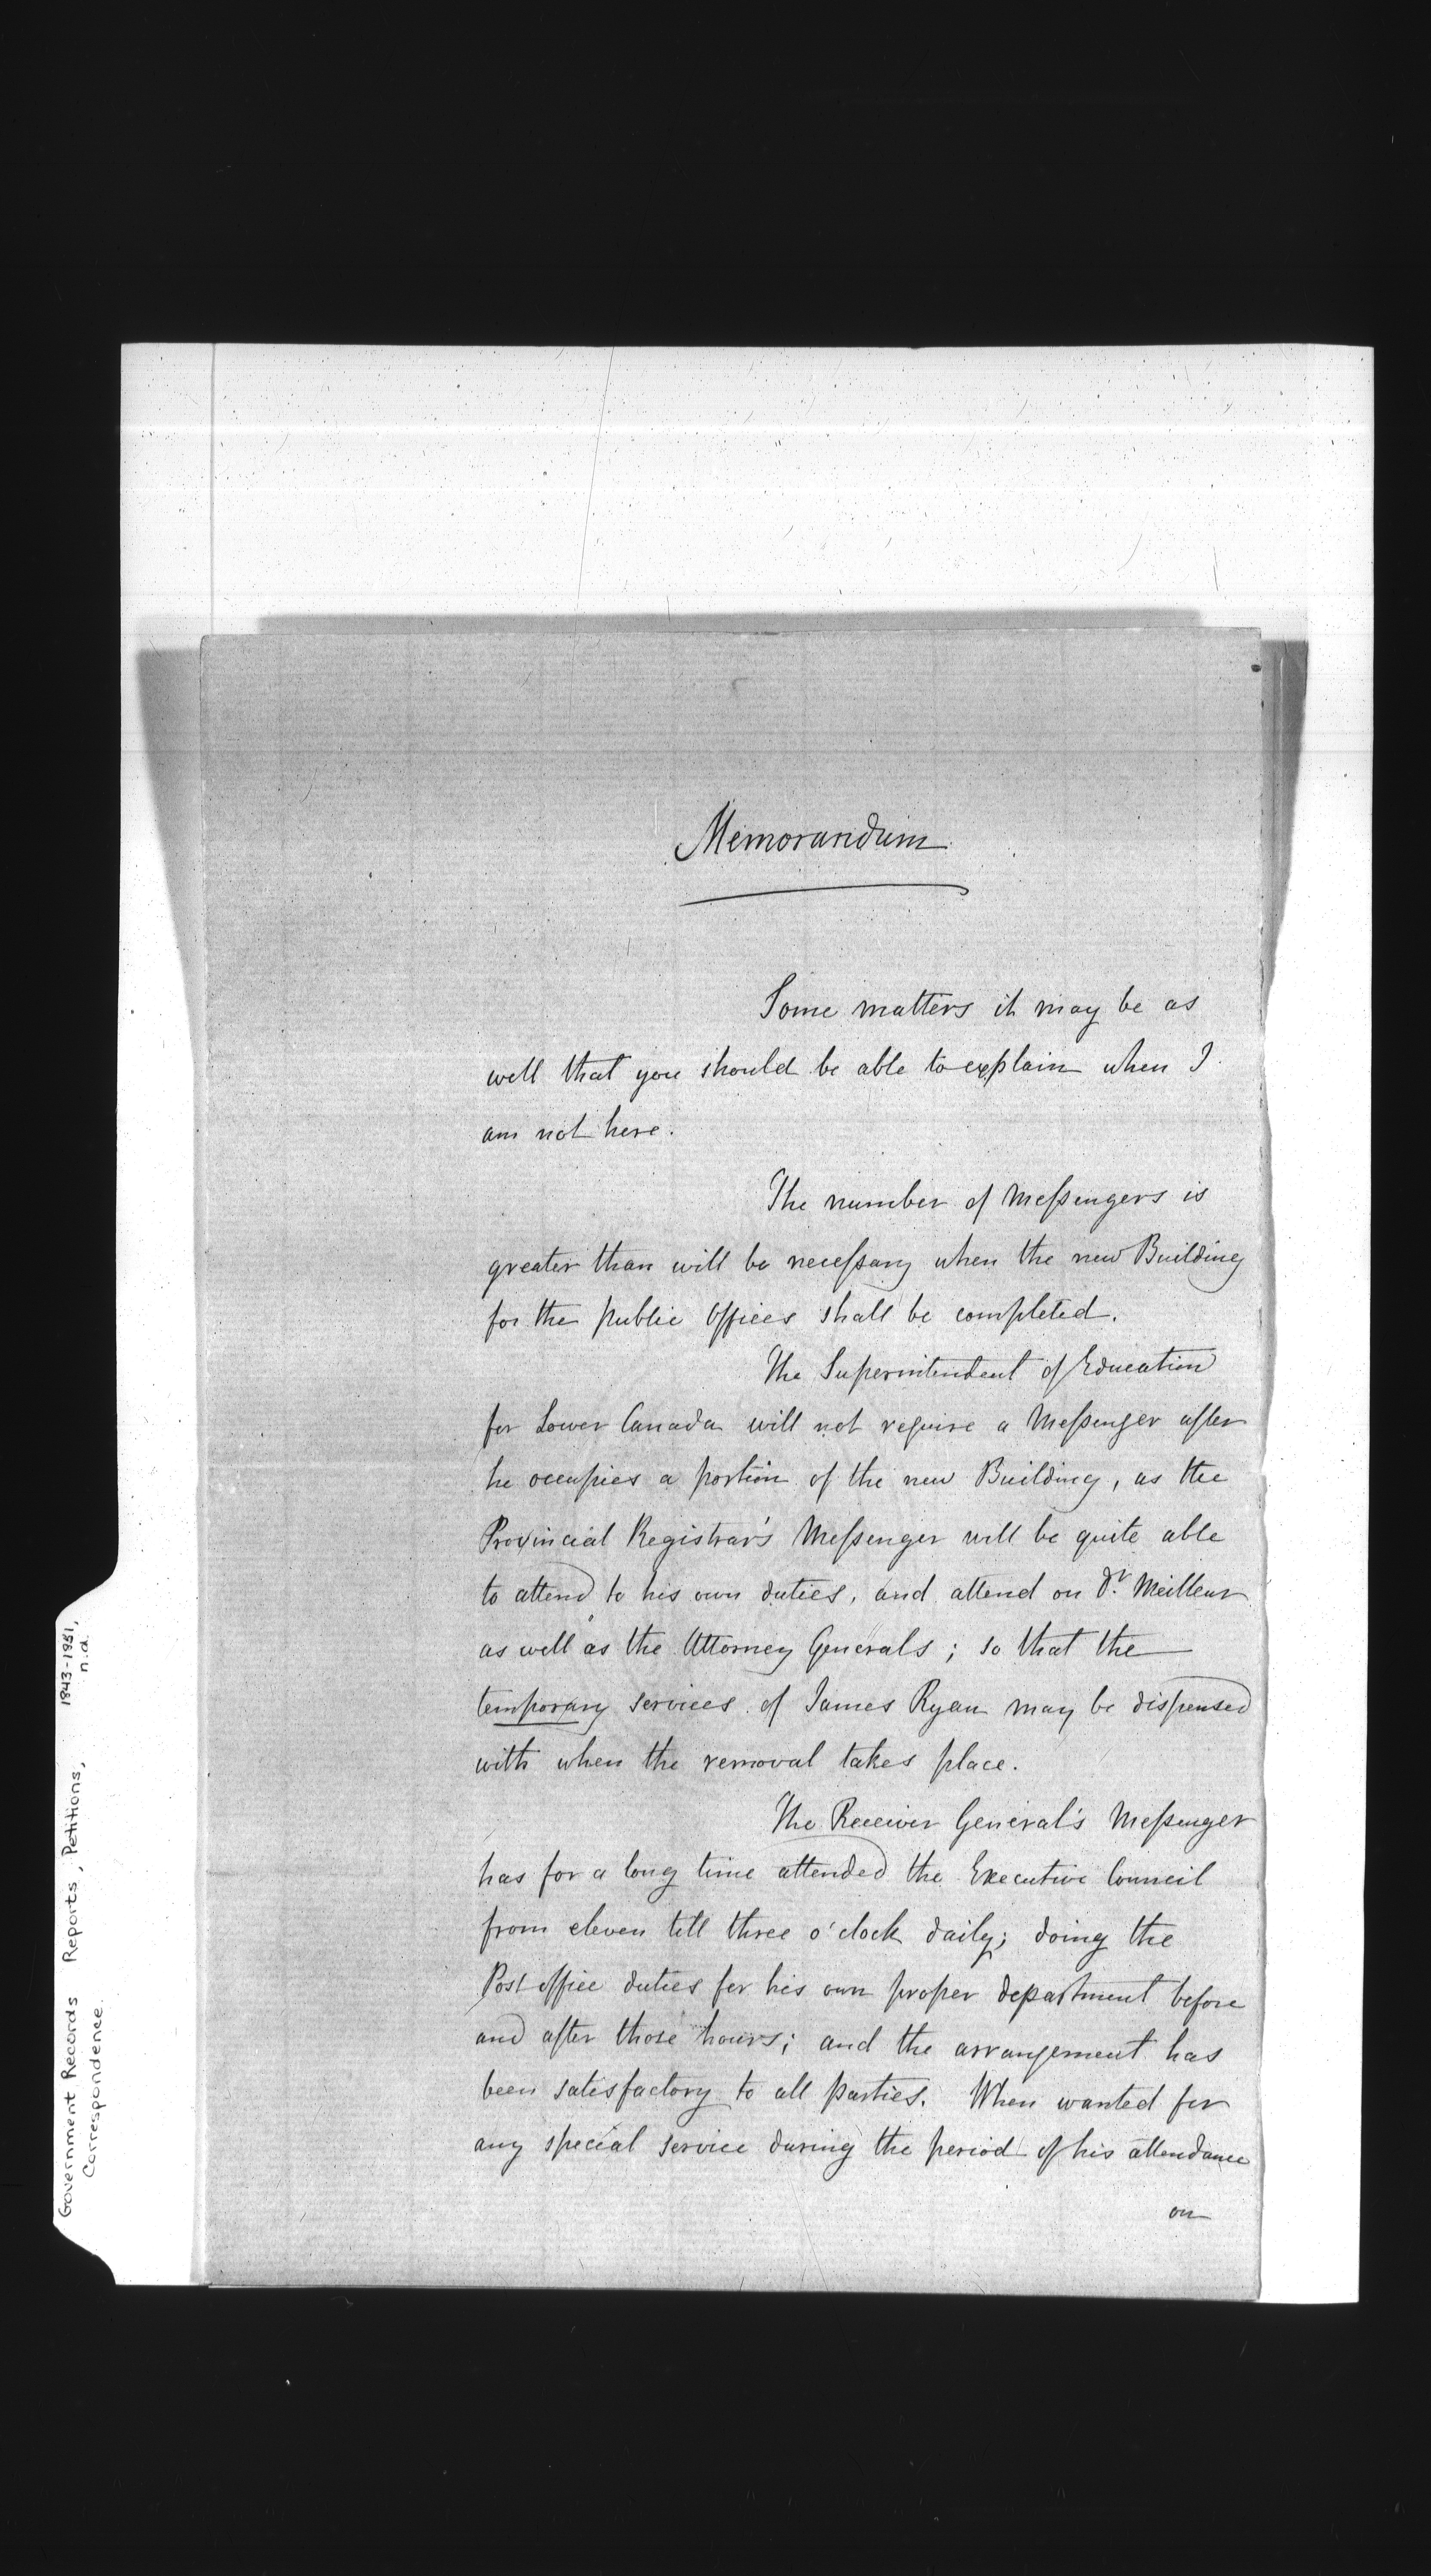 Memorandum
Some matters it may be as
well that you should be able to explain when I
am not here.
The number of Meſsengers is
greater than will be neceſsary when the new Building
for the public Offices shall be completed.
The Superintendent of Education
for Lower Canada will not require a Meſsenger after
he occupies a portion of the new Building, as the
Provincial Registrar's Meſsenger will be quite able
to attend to his own duties, and attend on Dr. Meilleur
as well as the Attorney Generals; so that the
temporary services of James Ryan may be dispensed
with when the removal takes place.
The Receiver General's Meſsenger
has for a long time attended the Executive Council
from eleven till three o'clock daily; doing the
Post office duties for his own proper department before
and after those hours; and the arrangement has
been satisfactory to all parties. When wanted for
any special service during the period of his attendance
on
Government Records Reports, Petitions, 1843-1951,
Correspondence. n.d.